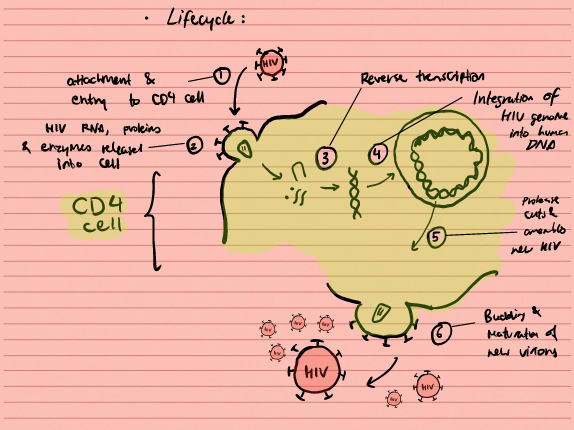 • Lifecycle:
HIV
1
attachment &
entry to CD4 cell
HIV RNA, proteins
& enzymes released
into cell
2
CD4
cell
3
Reverse transcription
4
Integration of
HIV genome
into human
DNA
Protease
cuts &
assembles
new HIV
5
6
Budding &
maturation of
new virions
HIV
HIV
HIV
HIV
HIV
HIV
HIV